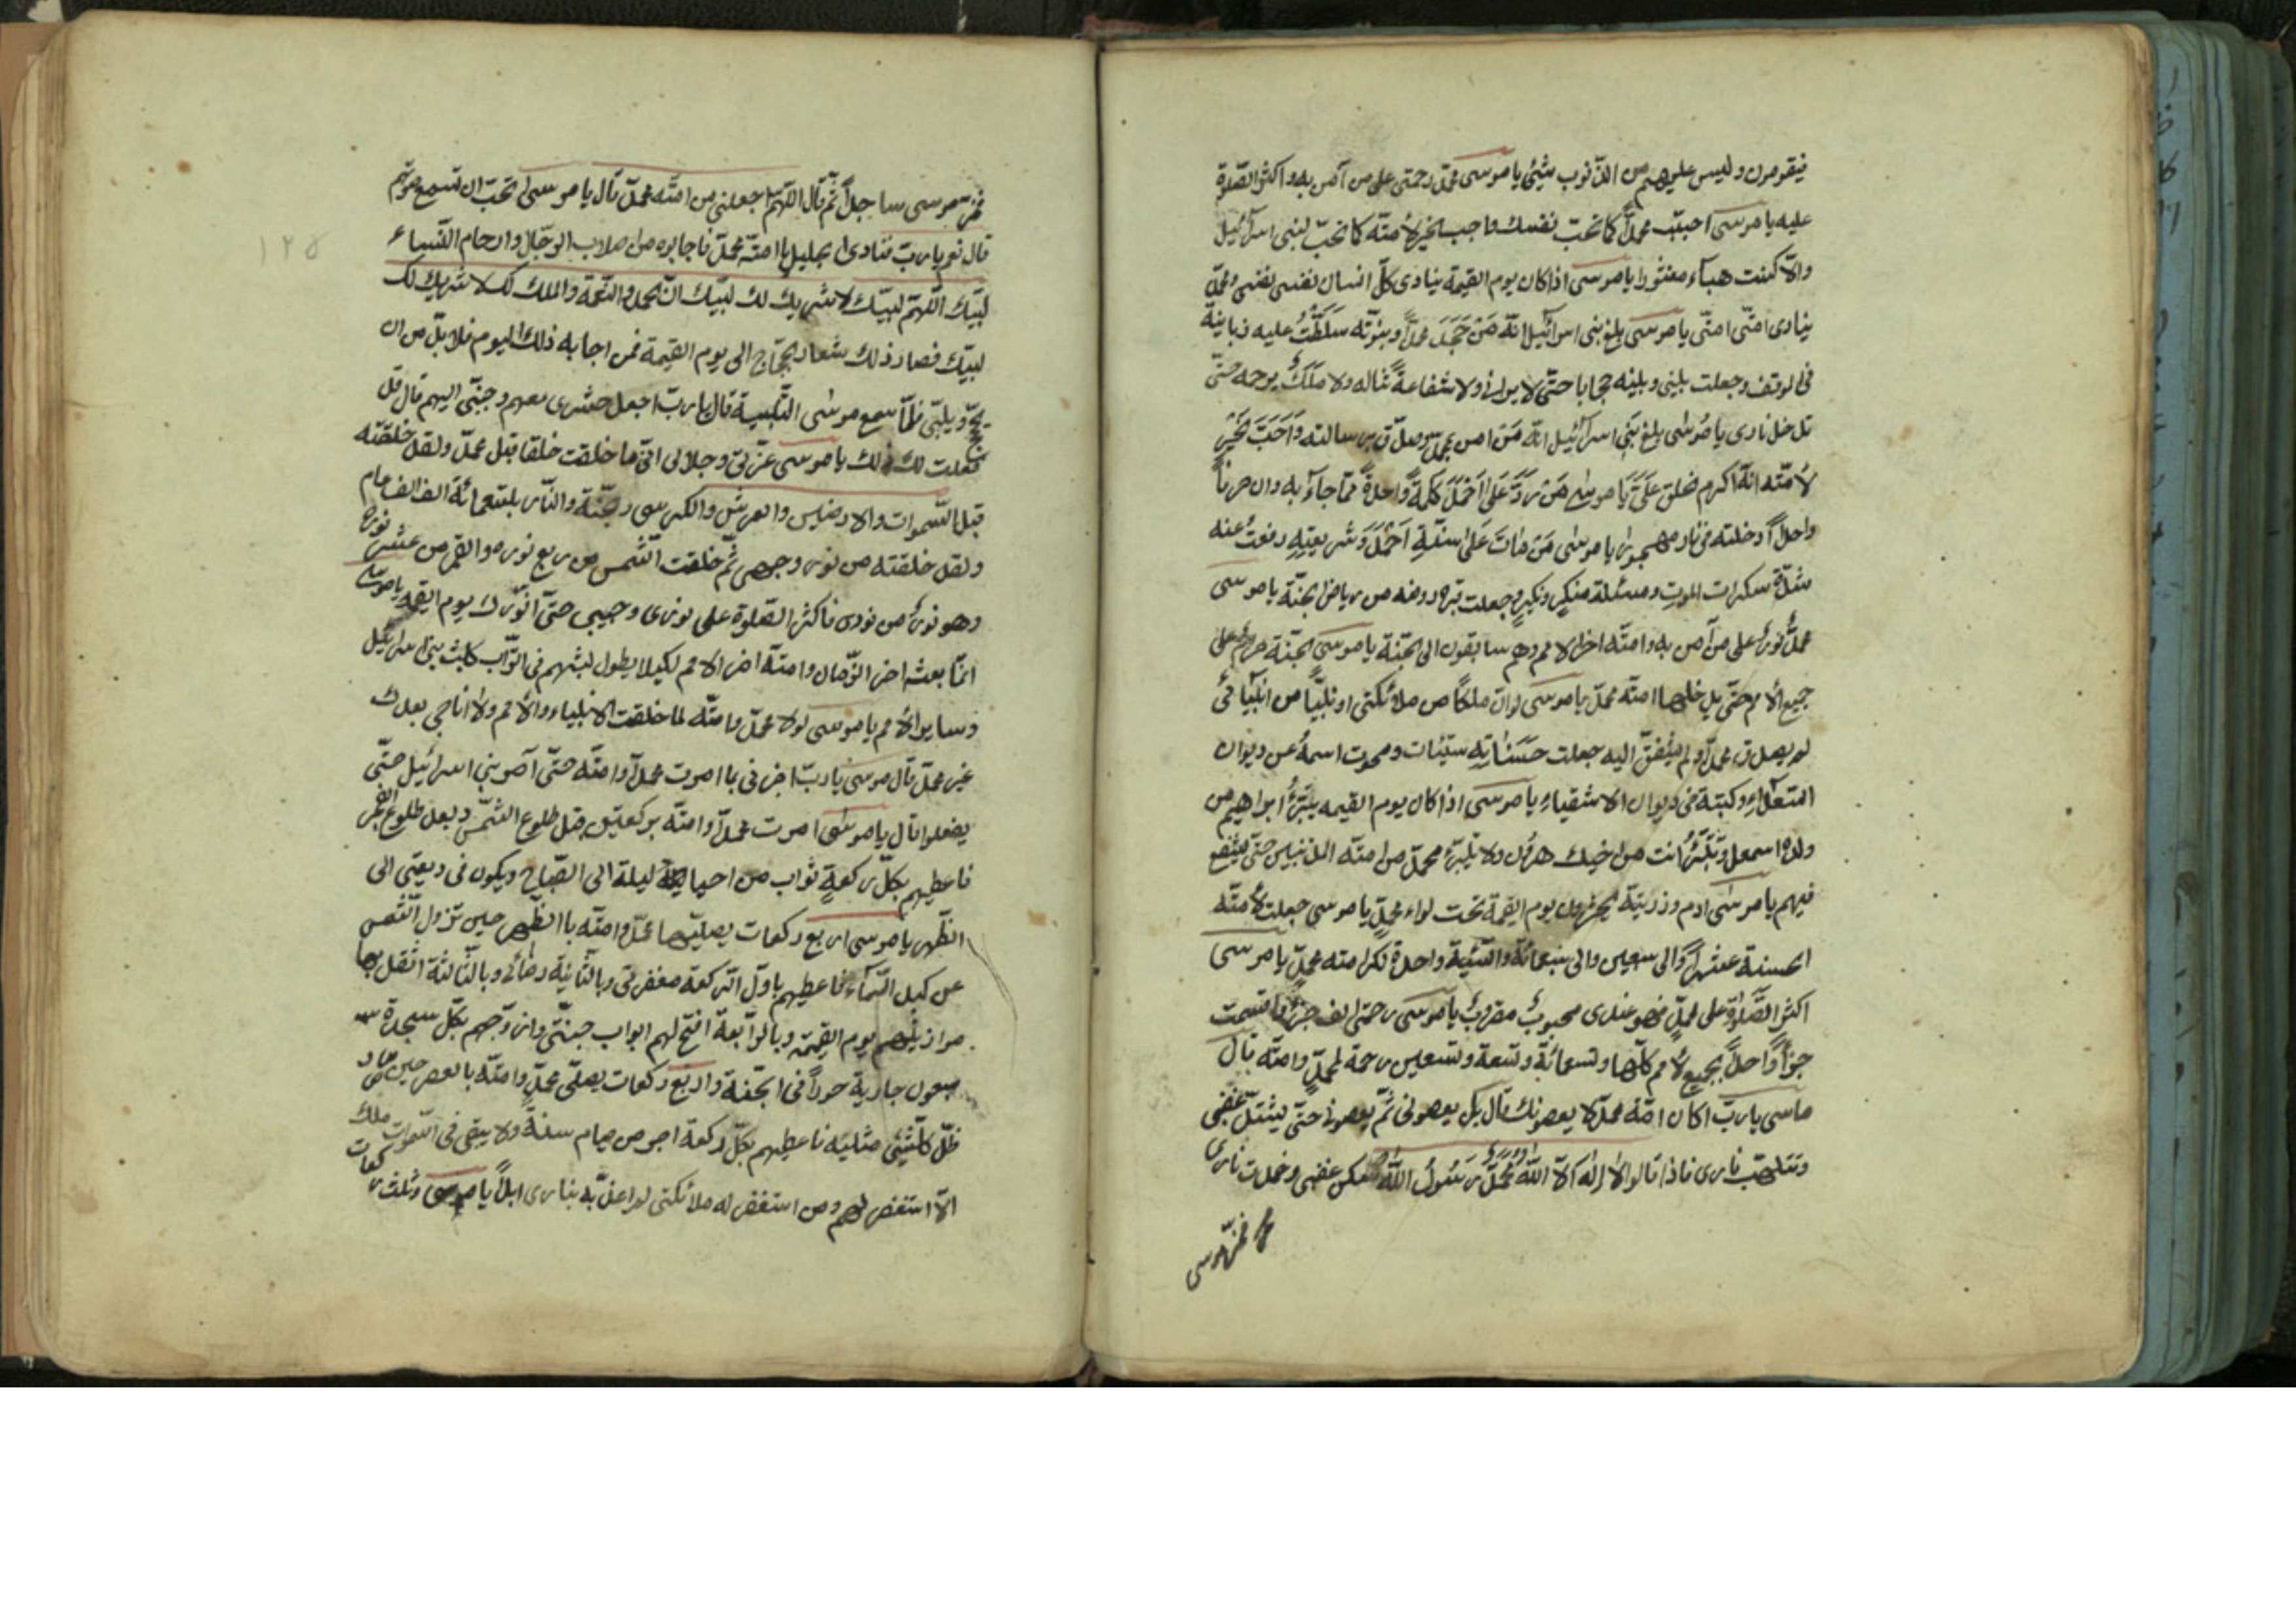 فيقومون وليس عليهم من الذنوب شيئ يا موسى محمد رحمتي على من آمن به واكثر الصلوة
عليه يا موسى احبب محمداً كما تحب نفسك واحب الخير لأمته كما تحب لبني اسرائيل
والّا كنت هباء منثورا يا موسى اذا كان يوم القيمة ينادى كلّ انسان نفسى نفسى ومحمد
ينادى امتى امتى يا موسى بلغ بنى اسرائيل انّه مَنْ جَحَدَ محمداً وبنوّته سَلَطْتُ عليه زبانية
فى الموقف وجعلت بينى وبينه حجابا حتّى لا يرانى ولا شفاعةً تناله ولا مَلَكٌ يرحمه حتّى
تدخل نارى يا مُوسٰى بلغ بَنى اسرائيل انّه مَنْ امن بمحمد وصدّق برسالته وَاَحَبَّ الخَيْر
لأمّته انّه اكرم خلق عَلَىَّ يَا موسٰى مَنْ رَدَّ عَلٰى اَحْمَدَ كلمةً واحدةً ممّا جاء به وان حرفاً
واحداً ادخلته فى نار مهجورا يا موسٰى مَنْ مَاتَ عَلٰى سنّةِ اَحْمَدَ وَشريعتِهِ رفعتُ عنه
شدّة سكرات الموتِ ومسئلة منكرٍ ونكيرٍ وجعلت قبره روضه من رياض الجنّة يا موسى
محمّدٌ نورٌ على من آمن به وامتّه اخر الامم وهم سابقون الى الجنّة يا موسَى الجنّة حرام على
جميع الأمم حتّى يدخلها امتّه محمد يا موسَى لو انّ ملكًا من ملائكتى او نبيّاً من انبيآئى
لم يصدق محمداً ولم يشفق اليه جعلت حَسَنٰاتِهِ سيّئات ومحوت اسمهُ عن ديوان
السّعداء وكتبته فى ديوان الاشقياءِ يا موسَى اذا كان يوم القيمه يتبَرّءُ ابراهيم من
ولده اسمعيل وتَتَبَرّءُ انت من اخيك هرون ولا يتبرّء محمّد من امتّه المذنبين حتّى يشفع
فيهم يا موسٰى ادم وذريّته يحشرون يوم القيمة تحت لواء محمدٍ يا موسى جعلت لأمتّه
الحسنة عشراً والى سبعين والى سبعمائة والسّيّئة واحدة لكرامته محمدٍ يا موسى
اكثر الصّلوٰةِ على محمدٍ فهو عندى محبوبٌ مقروبٌ يا موسَى رحمتى الف جزءٍ فاقسمت
جزأً واحداً بجميع الأمم كلّها وتسعمائة وتسعة وتسعين رحمة لمحمّدٍ وامتّه قال
ماسى يا ربّ اكان امّة محمد لا يعصونك قال بلٰى يعصونى ثمّ يعصونى حتّى يشتدّ غضبى
وتتلهب نارى فاذا قالوا لا اِلٰه اِلّا اللّهُ مُحَمَّدٌ رَسُولُ اللّهِ سكن غضبى وخمدت نارى
فخرّ موسى
١٢٥
فخرّ موسى ساجداً ثمّ قال اللّهمّ اجعلنى من امتّه محمد قال يا موسىٰ تحبّ ان تسمع صوتهم
قال نعم يا ربّ فنادى الجليل يا امتّه محمد فاجابوه من اصلاب الرّجال وارحام النّساء
لبّيك اللّهمّ لبّيك لا شريك لك لبّيك انّ الحمد والنّعمة والملك لك لا شريك لك
لبّيك فصار ذلك شعار الحجّاج الى يوم القيمة فمن اجابه ذلك اليوم فلا بدّ من ان
يحجّ ويلبّى فلمّا سمع موسٰى التّلبية قال يا ربّ اجعل حشرى معهم وحبّبنى اليهم قال قد
فعلت لك ذلك يا موسى عزّتى وجلالى انّى ما خلقت خلقا قبل محمد ولقد خلقته
قبل السّموات والارضين والعرش والكرسى والجنّة والنّار بتسعمائة الف الف عام
ولقد خلقته من نور وجهى ثمّ خلقت الشّمس من ربع نوره والقمر من عشر نوره
وهو نورٌ من نورى فاكثر الصّلوة على نورى وحبيبى حتّى انوّرك يوم القيمه يا موسٰى
انّما بعثته اخر الزّمان وامتّه اخر الامم لكيلا يطول لبثهم فى التّراب كلبث بنى اسرائيل
وسايرالأمم يا موسَى لولا محمد وامتّه لما خلقت الانبياء والأمم ولا اناجى بعدك
غير محمد قال موسَى يا ربّ اخبرنى بما امرت محمداً وامتّه حتّى آمر بنى اسرائيل حتّى
يفعلوا قال يا موسٰى امرت محمداً وامتّه بركعتين قبل طلوع الشّمس وبعد طلوع الفجر
فاعطيهم بكلّ ركعةٍ ثواب من احيا ليلة الى الصّباح ويكون فى وديعتى الى
الظّهر يا موسى اربع ركعات يصلّيها محمد وامتّه باالظّهر حين تزول الشّمس
عن كبد السّمآء فاعطيهم باوّل الرّكعة مغفرتى وبالثّانية رضائى وبالثّالثة اثقل بها
موازينهم يوم القيمة وبالرّابعة افتح لهم ابواب جنّتى وازوّجهم بكلّ سجدة
سبعون جارية حوراً فى الجنّة واربع ركعات يصلّى محمد وامتّه بالعصر حين صار
ظلّ كلّ شيئى مثليه فاعطيهم بكلّ ركعة اجر من صيام سنةً ولا يبقى فى السّموات ملك
الّا استغفر لهم ومن استغفر له ملائكتى لم اعذّبه بنارى ابداً يا موسى وثلث ركعات